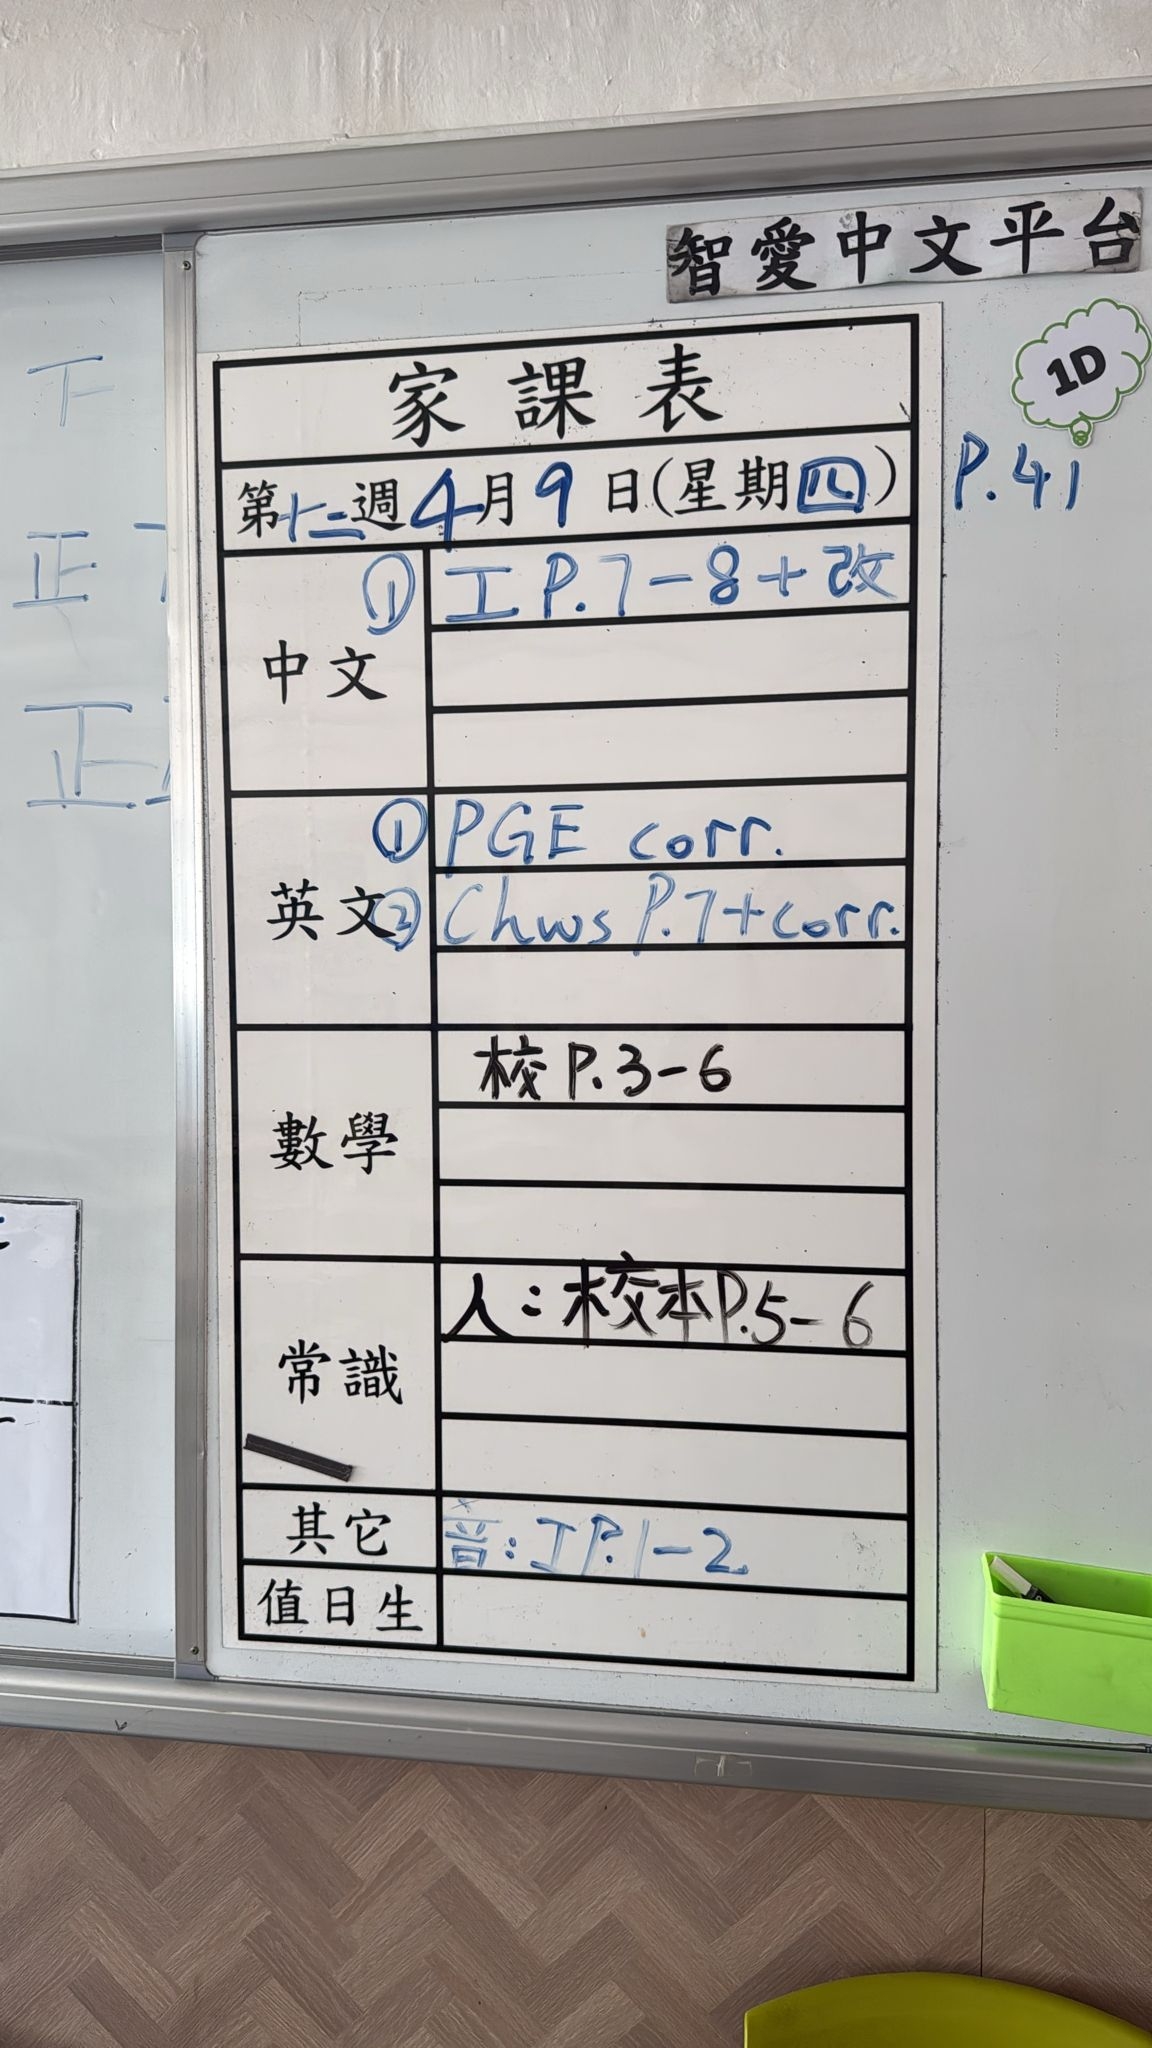 智愛中文平台
1D
家課表
第十二週4月9日(星期四)
P.41
中文
① 工P.7-8+改
英文
① PGE corr.
② Chws P.7+corr.
數學
校P.3-6
常識
人：校本P.5-6
其它
音：工P.1-2
值日生
下
正
正